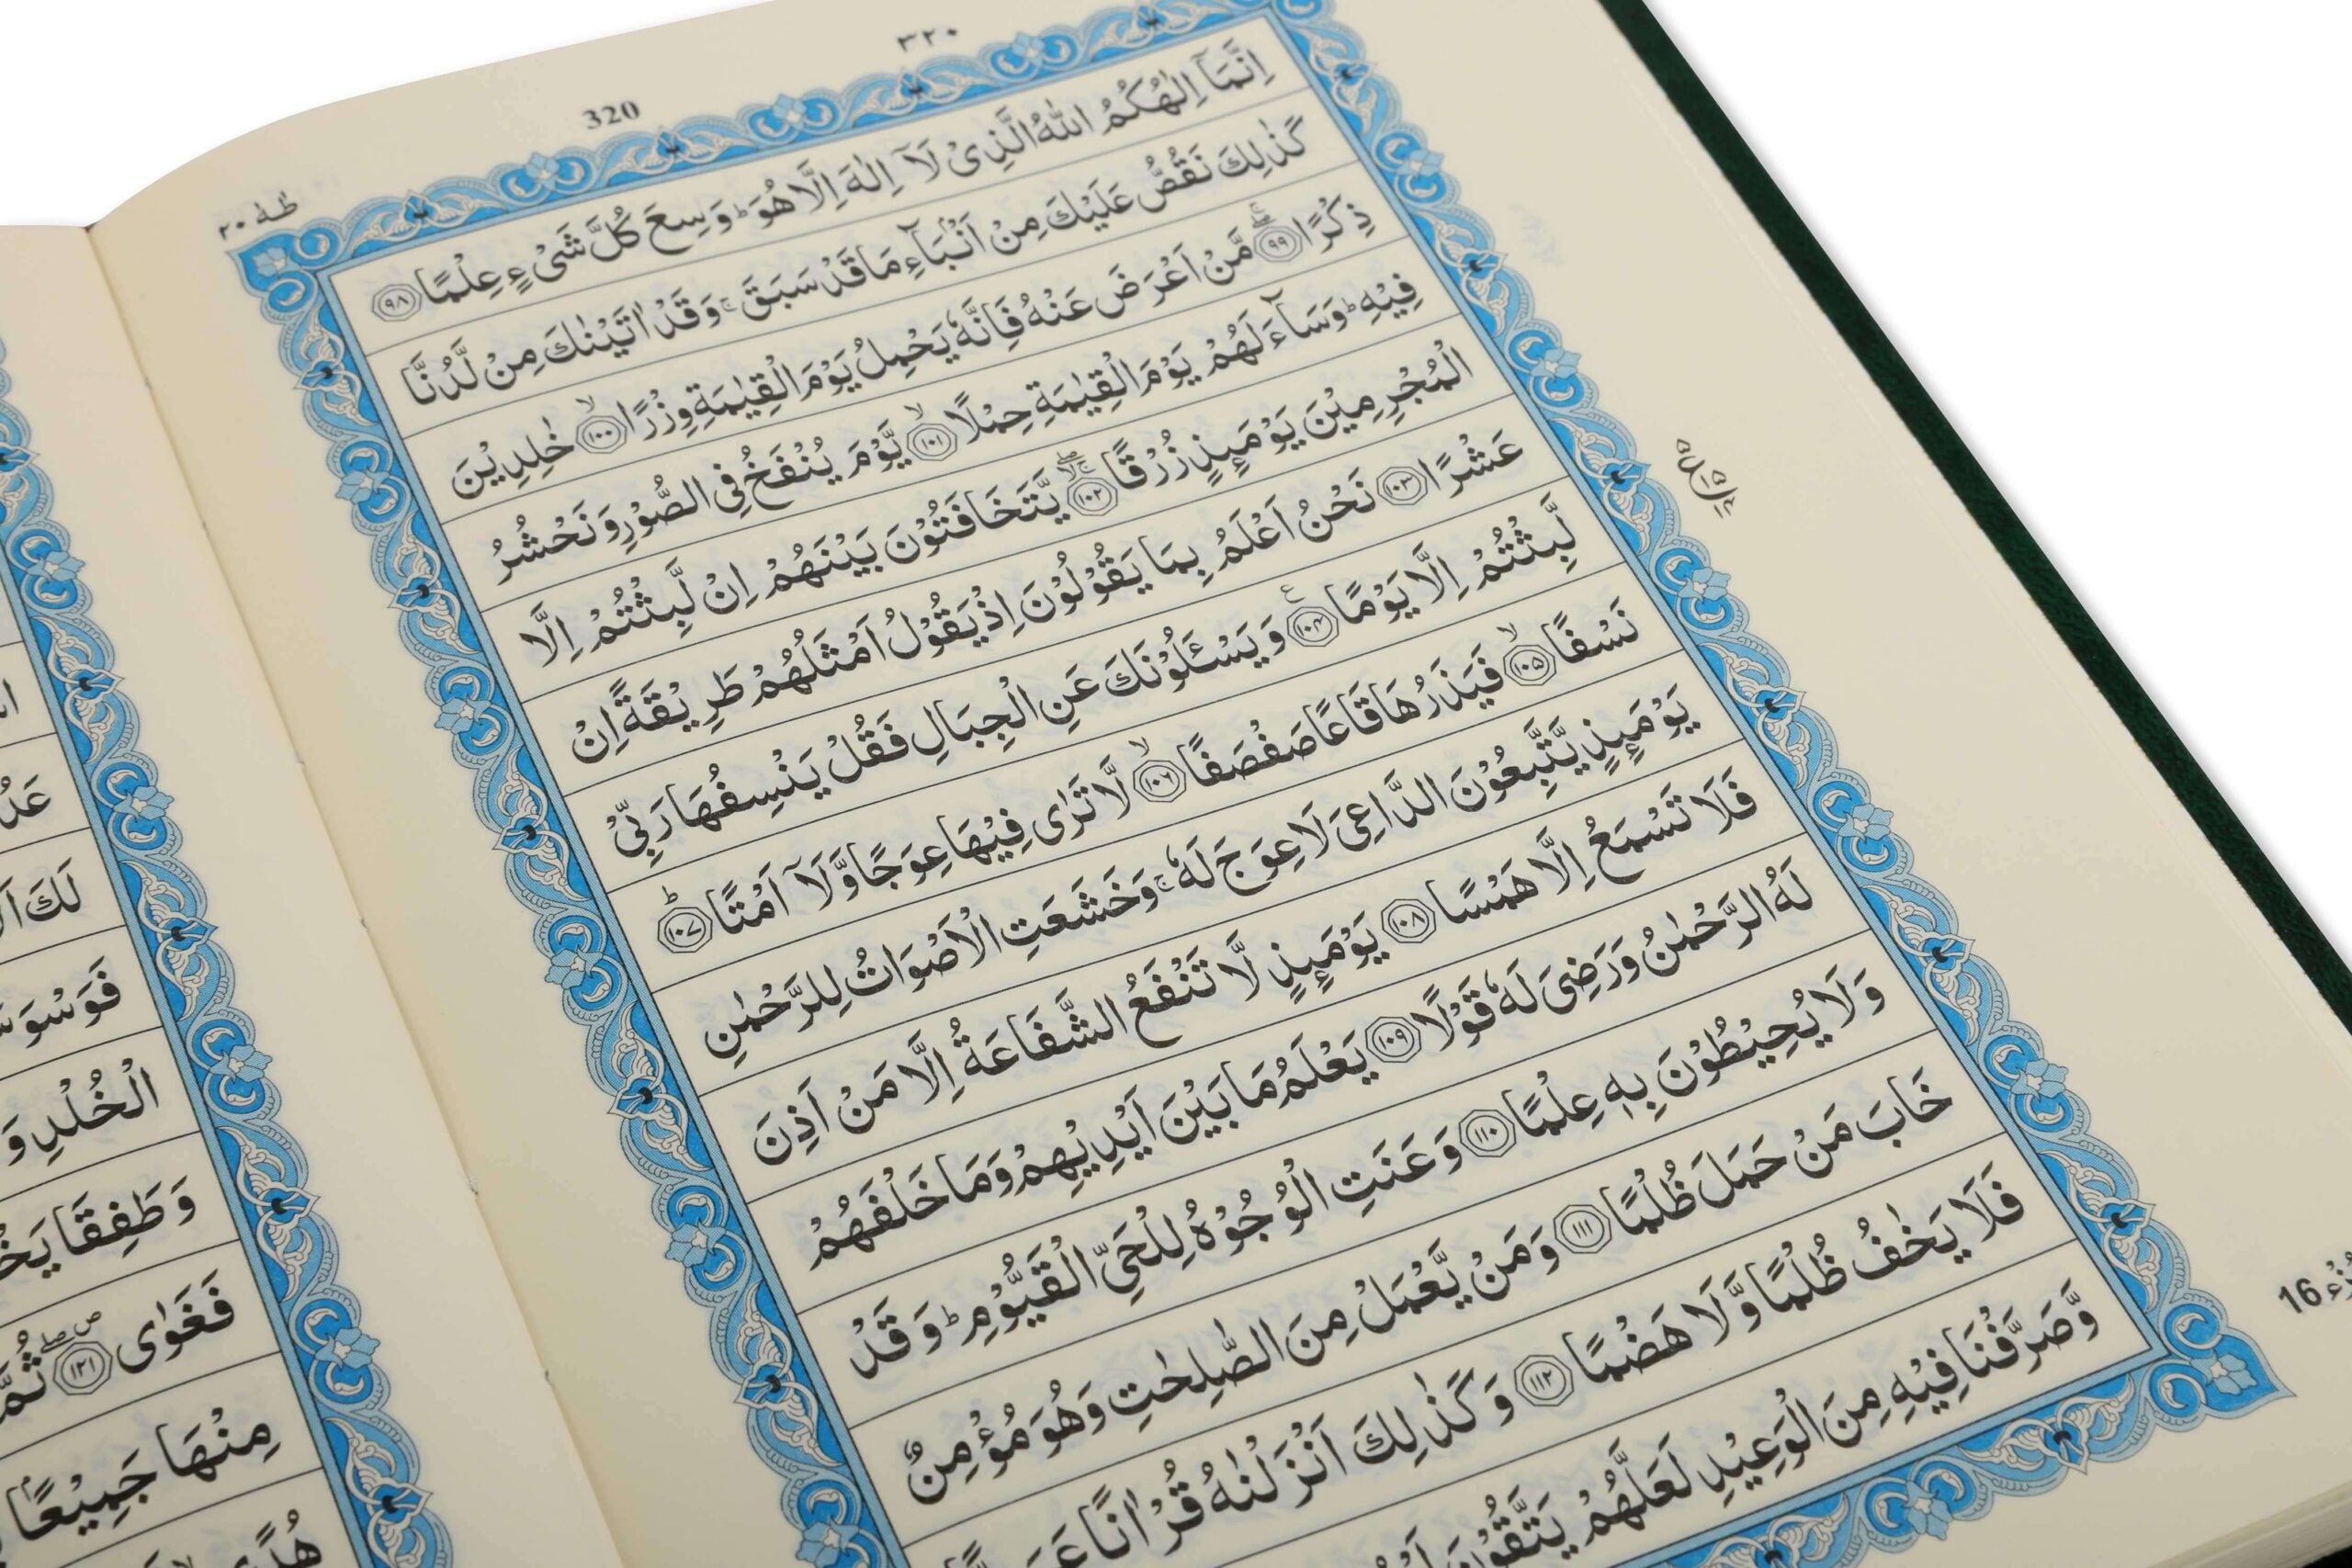 ٣٢٠
320
طٰهٰ ٢٠
اِنَّمَاۤ اِلٰهُكُمُ اللّٰهُ الَّذِیْ لَاۤ اِلٰهَ اِلَّا هُوَ ؕ وَسِعَ كُلَّ شَیْءٍ عِلْمًا ﴿٩٨﴾
كَذٰلِكَ نَقُصُّ عَلَیْكَ مِنْ اَنْۢبَآءِ مَا قَدْ سَبَقَ ۚ وَقَدْ اٰتَیْنٰكَ مِنْ لَّدُنَّا
ذِكْرًا ﴿٩٩﴾ مَّنْ اَعْرَضَ عَنْهُ فَاِنَّهٗ یَحْمِلُ یَوْمَ الْقِیٰمَةِ وِزْرًا ﴿١٠٠﴾ خٰلِدِیْنَ
فِیْهِ ؕ وَسَآءَ لَهُمْ یَوْمَ الْقِیٰمَةِ حِمْلًا ﴿١٠١﴾ یَّوْمَ یُنْفَخُ فِی الصُّوْرِ وَنَحْشُرُ
الْمُجْرِمِیْنَ یَوْمَىِٕذٍ زُرْقًا ﴿١٠٢﴾ یَّتَخَافَتُوْنَ بَیْنَهُمْ اِنْ لَّبِثْتُمْ اِلَّا
عَشْرًا ﴿١٠٣﴾ نَحْنُ اَعْلَمُ بِمَا یَقُوْلُوْنَ اِذْ یَقُوْلُ اَمْثَلُهُمْ طَرِیْقَةً اِنْ
لَّبِثْتُمْ اِلَّا یَوْمًا ﴿١٠٤﴾ وَیَسْـَٔلُوْنَكَ عَنِ الْجِبَالِ فَقُلْ یَنْسِفُهَا رَبِّیْ
نَسْفًا ﴿١٠٥﴾ فَیَذَرُهَا قَاعًا صَفْصَفًا ﴿١٠٦﴾ لَّا تَرٰی فِیْهَا عِوَجًا وَّلَاۤ اَمْتًا ﴿١٠٧﴾
یَوْمَىِٕذٍ یَّتَّبِعُوْنَ الدَّاعِیَ لَا عِوَجَ لَهٗ ۚ وَخَشَعَتِ الْاَصْوَاتُ لِلرَّحْمٰنِ
فَلَا تَسْمَعُ اِلَّا هَمْسًا ﴿١٠٨﴾ یَوْمَىِٕذٍ لَّا تَنْفَعُ الشَّفَاعَةُ اِلَّا مَنْ اَذِنَ
لَهُ الرَّحْمٰنُ وَرَضِیَ لَهٗ قَوْلًا ﴿١٠٩﴾ یَعْلَمُ مَا بَیْنَ اَیْدِیْهِمْ وَمَا خَلْفَهُمْ
وَلَا یُحِیْطُوْنَ بِهٖ عِلْمًا ﴿١١٠﴾ وَعَنَتِ الْوُجُوْهُ لِلْحَیِّ الْقَیُّوْمِ ؕ وَقَدْ
خَابَ مَنْ حَمَلَ ظُلْمًا ﴿١١١﴾ وَمَنْ یَّعْمَلْ مِنَ الصّٰلِحٰتِ وَهُوَ مُؤْمِنٌ
فَلَا یَخٰفُ ظُلْمًا وَّلَا هَضْمًا ﴿١١٢﴾ وَكَذٰلِكَ اَنْزَلْنٰهُ قُرْاٰنًا
وَّصَرَّفْنَا فِیْهِ مِنَ الْوَعِیْدِ لَعَلَّهُمْ یَتَّقُوْنَ
16
لَكَ
الْخُلْدِ وَ
وَطَفِقَا
فَغَوٰی ﴿١٢١﴾ ثُمَّ
مِنْهَا جَمِیْعًا
هُدًی